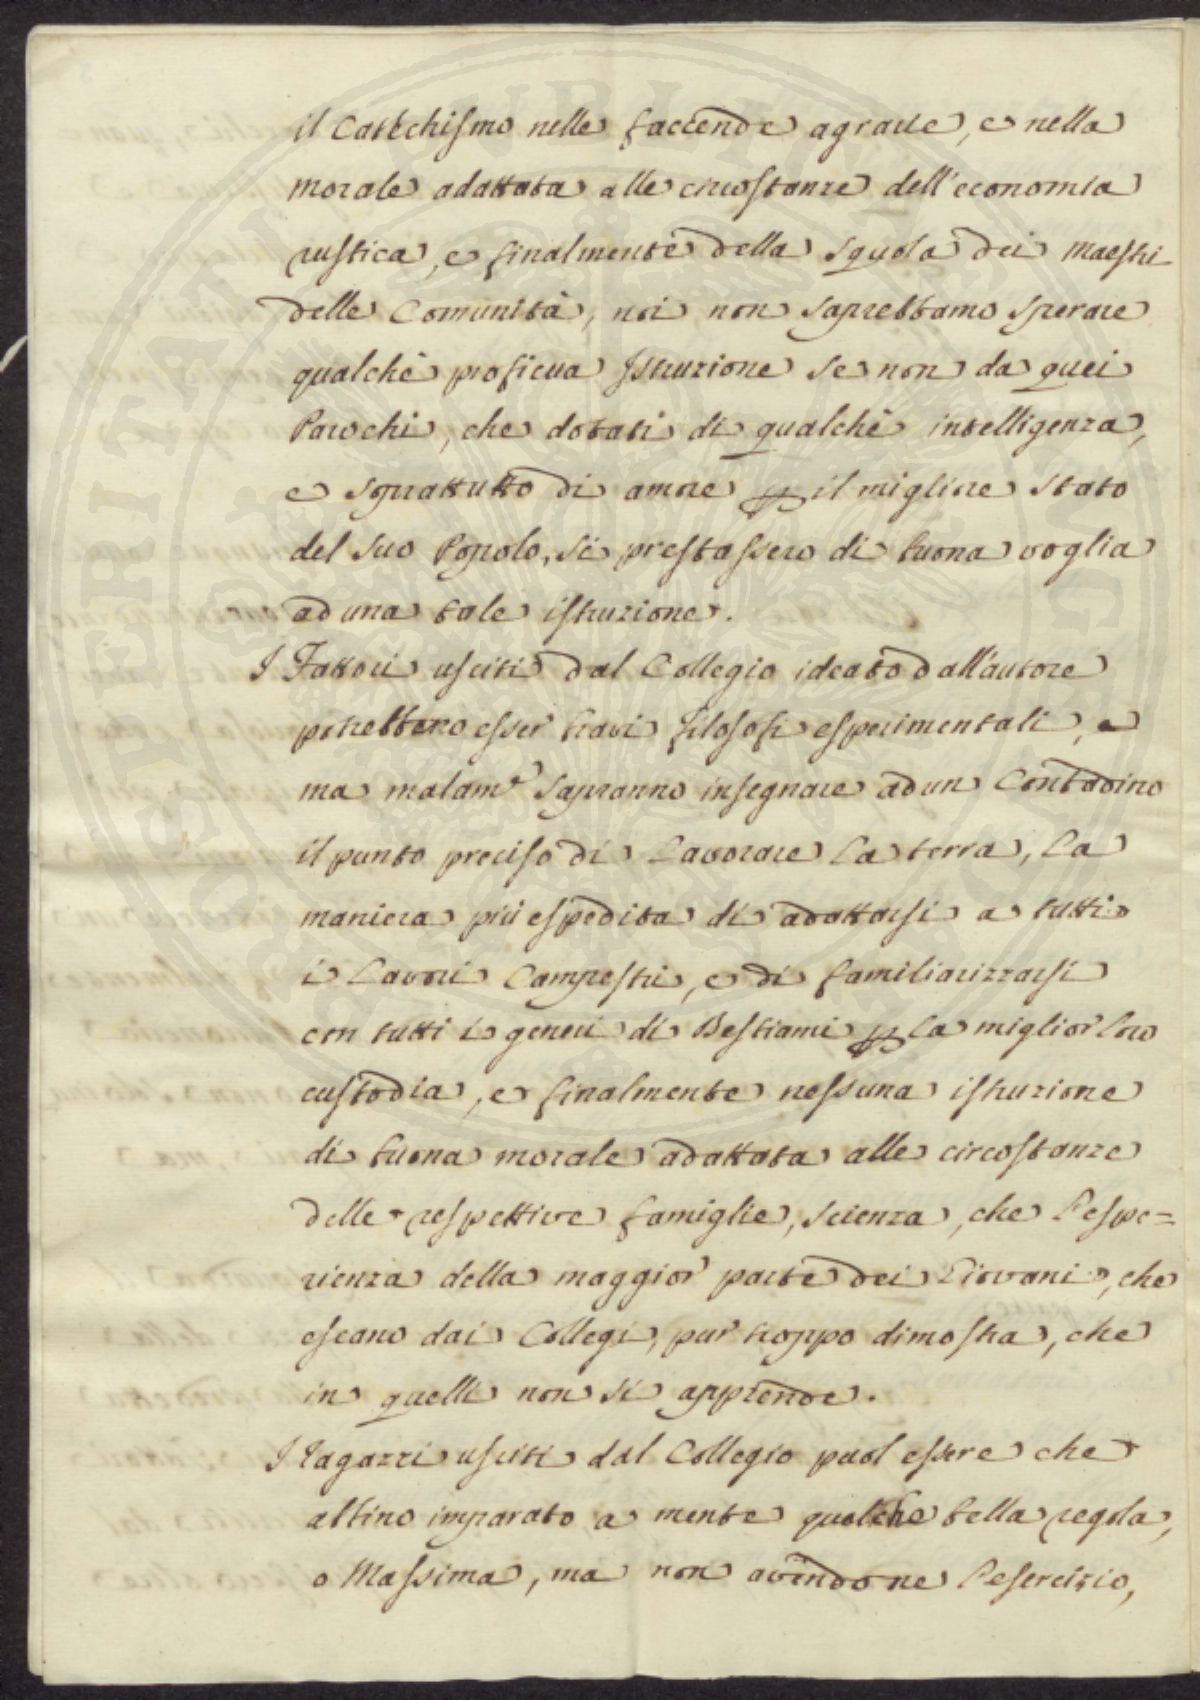 il Catechismo nelle faccende agrarie, e nella
morale adattata alle circostanze dell'economia
rustica, e finalmente della squola dei Maestri
delle Comunità, noi non saprebbamo sperare
qualche proficua Istruzione se non da quei
Parochi, che dotati di qualche intelligenza,
e soprattutto di amore p il migliore stato
del suo Popolo, si prestassero di buona voglia
ad una tale istruzione.
I Fattori usciti dal Collegio ideato dall'autore
potrebbero esser bravi filosofi esperimentali, e
ma malam.e sapranno insegnare ad un Contadino
il punto preciso di lavorare la terra, la
maniera più espedita di adattarsi a tutti
i lavori Campestri, e di familiarizzarsi
con tutti i generi di Bestiami p la miglior loro
custodia, e finalmente nessuna istruzione
di buona morale adattata alle circostanze
delle respettive famiglie, scienza, che l'espe=
rienza della maggior parte dei Giovani, che
escano dai Collegi, pur troppo dimostra, che
in quelli non si apprende.
I Ragazzi usciti dal Collegio puol essere che
abbino imparato a mente qualche bella regola,
o Massima, ma non avendone l'esercizio,
PROSPERITATI PUBLICAE AUGENDAE